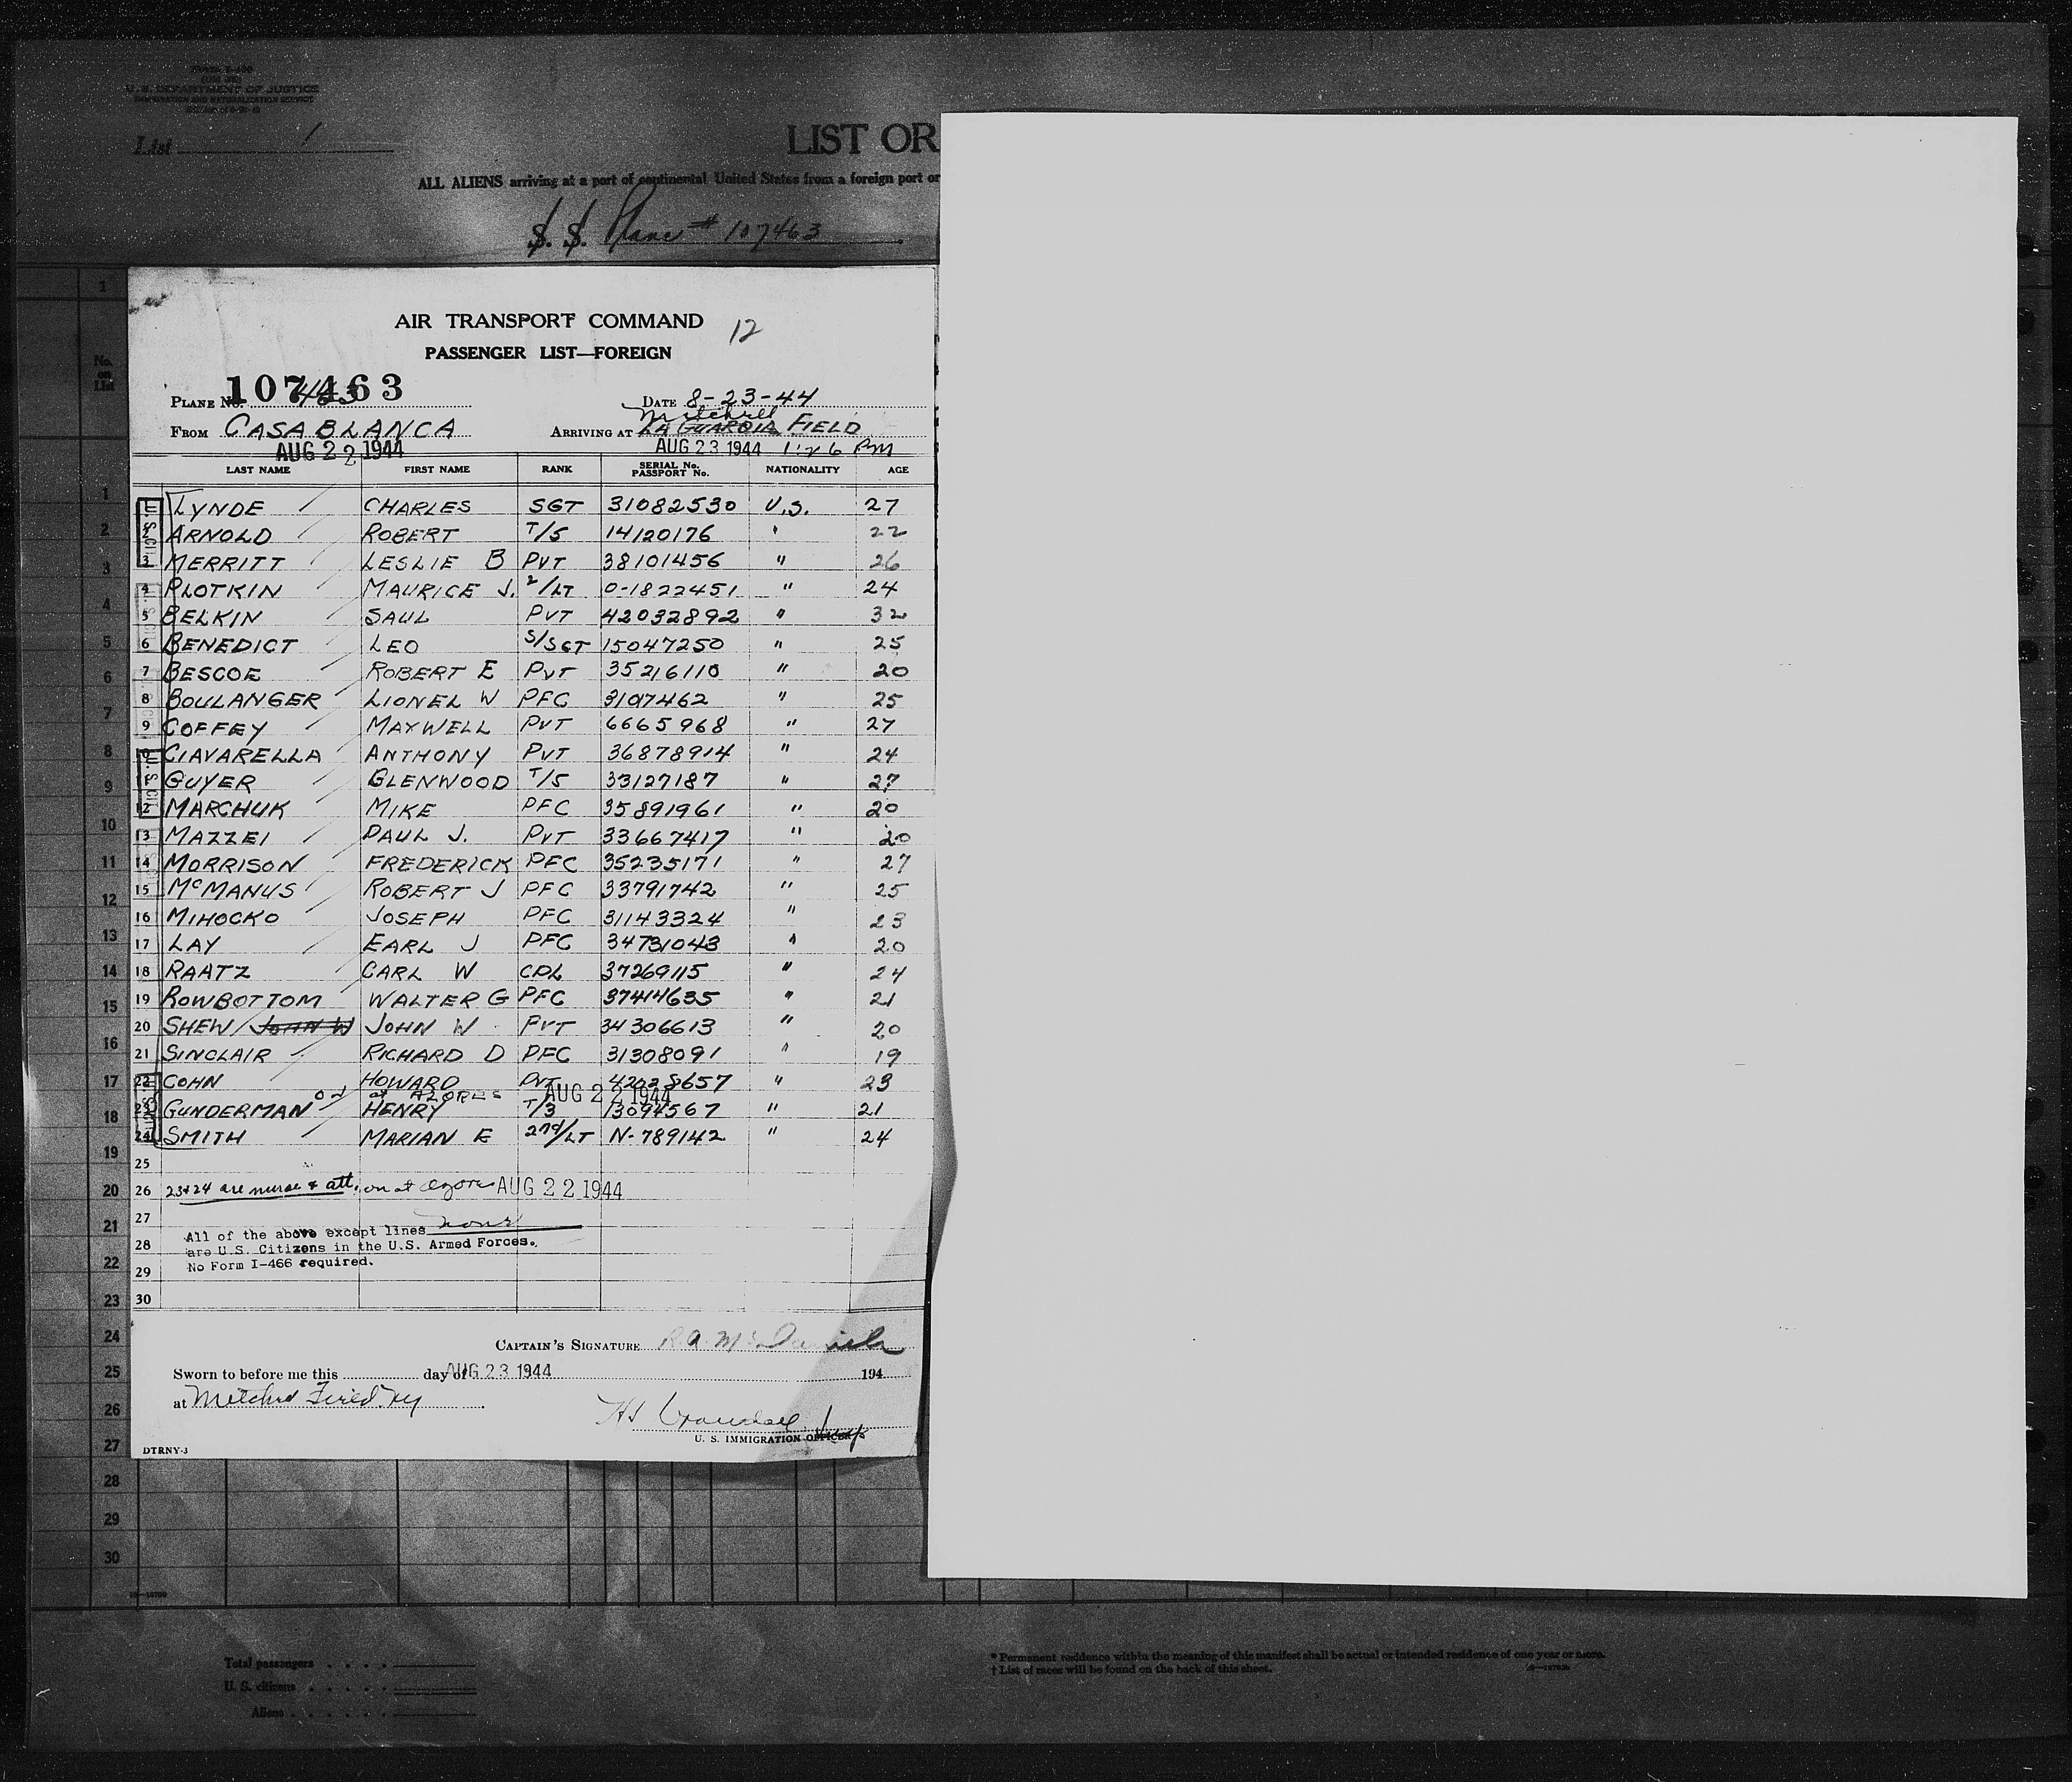 U. S. DEPARTMENT OF JUSTICE
IMMIGRATION AND NATURALIZATION SERVICE
List 1
LIST OR
ALL ALIENS arriving at a port of continental United States from a foreign port or
S. S. Plane # 107463
No. on List
AIR TRANSPORT COMMAND 12
PASSENGER LIST—FOREIGN
PLANE No. 107463 DATE 8-23-44
Mitchell
FROM CASABLANCA ARRIVING AT LA GUARDIA FIELD
AUG 22 1944 AUG 23 1944 1:26 PM
LAST NAME FIRST NAME RANK SERIAL No. PASSPORT No. NATIONALITY AGE
LYNDE CHARLES SGT 31082530 U.S. 27
2 ARNOLD ROBERT T/5 14120176 " 22
3 MERRITT LESLIE B PVT 38101456 " 26
4 PLOTKIN MAURICE J. 2/LT 0-1822451 " 24
5 BELKIN SAUL PVT 42032892 " 32
6 BENEDICT LEO S/SGT 15047250 " 25
7 BESCOE ROBERT E PVT 35216110 " 20
8 BOULANGER LIONEL W PFC 3107462 " 25
9 COFFEY MAXWELL PVT 6665968 " 27
CIAVARELLA ANTHONY PVT 36878914 " 24
GUYER GLENWOOD T/5 33127187 " 27
12 MARCHUK MIKE PFC 35891961 " 20
13 MAZZEI PAUL J. PVT 33667417 " 20
14 MORRISON FREDERICK PFC 35235171 " 27
15 McMANUS ROBERT J PFC 33791742 " 25
16 MIHOCKO JOSEPH PFC 31143324 " 23
17 LAY EARL J PFC 34731043 " 20
18 RAATZ CARL W CPL 37269115 " 24
19 ROWBOTTOM WALTER G PFC 37414635 " 21
20 SHEW JOHN W JOHN W PVT 34306613 " 20
21 SINCLAIR RICHARD D PFC 31308091 " 19
22 COHN HOWARD PVT 42028657 " 23
at AZORES AUG 22 1944
23 GUNDERMAN HENRY T/3 13094567 " 21
24 SMITH MARIAN E 2nd/LT N-789142 " 24
25
26 23+24 are nurse & att. on at Azores AUG 22 1944
27
All of the above except lines none
28 are U.S. Citizens in the U.S. Armed Forces.
No Form I-466 required.
29
30
CAPTAIN'S SIGNATURE R A McDaniels
Sworn to before me this day of AUG 23 1944 194
at Mitchel Field NY
U. S. IMMIGRATION OFFICER
DTRNY-3
1
2
3
4
5
6
7
8
9
10
11
12
13
14
15
16
17
18
19
20
21
22
23
24
25
26
27
28
29
30
Total passengers
U. S. citizens
Aliens
* Permanent residence within the meaning of this manifest shall be actual or intended residence of one year or more.
† List of races will be found on the back of this sheet.